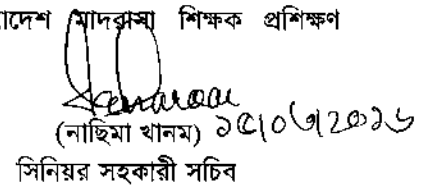 াদেশ মাদরাসা শিক্ষক প্রশিক্ষণ
(নাছিমা খানম) ১৫/০৬/২০১৬
সিনিয়র সহকারী সচিব